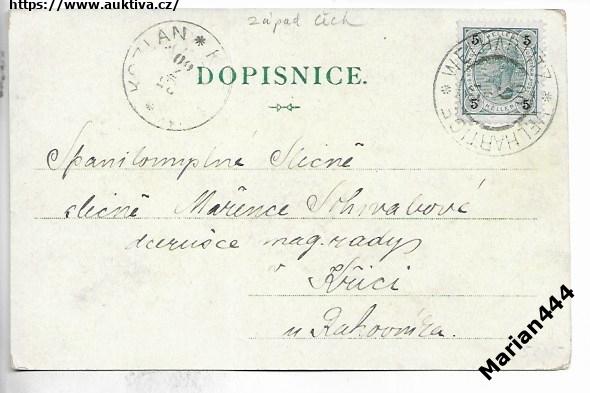 https://www.auktiva.cz/
západ Čech
KOZLAN *
DOPISNICE.
5 5
5 5
WELHARTITZ * WELHARTICE *
Spanilomyslné Slečně
slečně Mařence Schwabové
dcerušce mag. rady
v Křiči
u Rakovníka.
Marian444